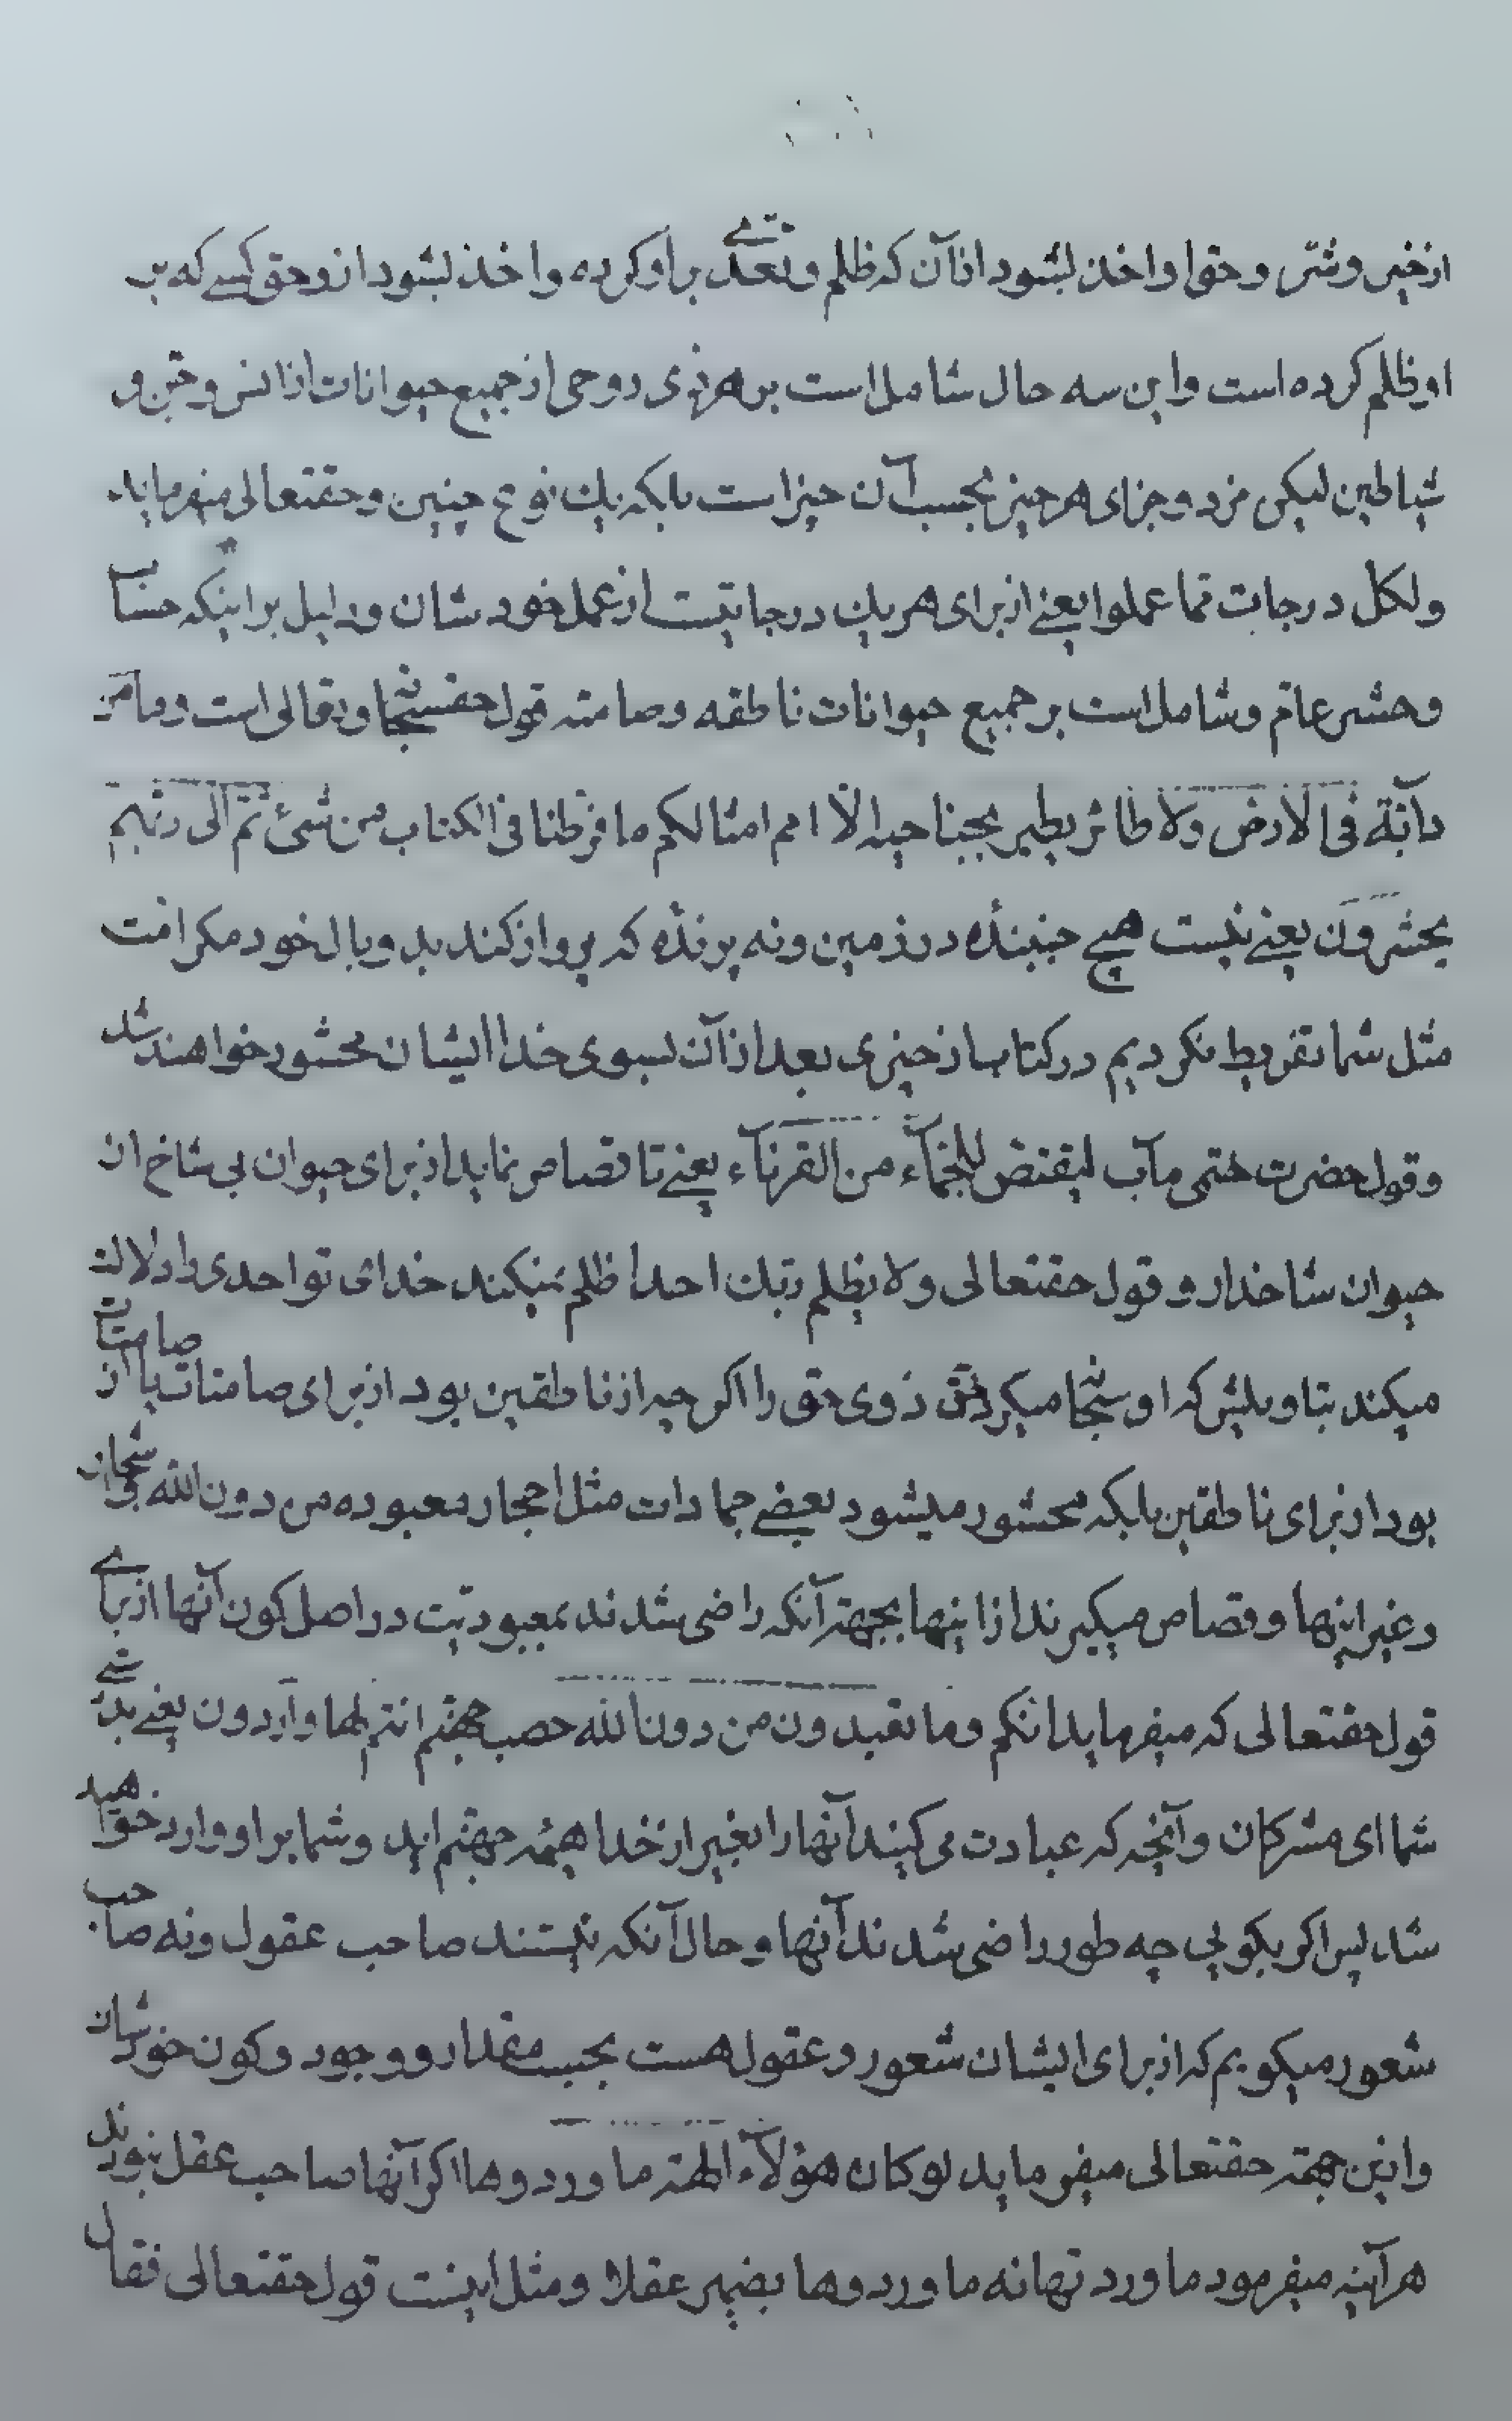 از خیر و شر و حق او اخذ بشود از آن که ظلم و تعدی بر او کرده و اخذ بشود از و حق کسی که بر
او ظلم کرده است و این سه حال شامل است بر هر ذی روحی از جمیع حیوانات از انس و جن و
شیاطین لیکن مزد و جزای هر چیز بحسب آن چیز است بلکه یک نوع چنین و حقتعالی میفرماید
ولکل درجات مما عملوا یعنی از برای هر یک درجاتیست از عمل خود شان و دلیل بر اینکه حساب
و حشر عام و شامل است بر جمیع حیوانات ناطقه و صامته قول حقسبحانه و تعالی است و ما من
دآبة فی الارض ولا طائر یطیر بجناحیه الّا امم امثالکم ما فرطنا فی الکتاب من شیئ ثم الی ربهم
یحشرون یعنی نیست هیچ جنبندهٔ در زمین و نه پرندهٔ که پرواز کند بدو بال خود مکر امت
مثل شما تفریط نکردیم در کتاب از چیزی بعد از آن بسوی خدا ایشان محشور خواهند شد
و قول حضرت ختمی مآب لیقتص للجمآء من القرنآء یعنی تا قصاص نماید از برای حیوان بی شاخ از
حیوان شاخدار و قول حقتعالی ولا یظلم ربک احدا ظلم نمیکند خدای تو احدی را دلالت
میکند بتاویلش که او سبحانه میکرد حق ذوی حق را اکر چه از ناطقین بود از برای صامتات یا از صامتات
بود از برای ناطقین بلکه محشور میشود بعضی جمادات مثل احجار معبوده من دون الله و اشجار
و غیر اینها و قصاص میکیرند از اینها بجهة آنکه راضی شدند بمعبودیت در اصل کون آنها از برای
قول حقتعالی که میفرماید انکم وما تعبدون من دون الله حصب جهنم انتم لها واردون یعنی بدرستی
شما ای مشرکان و آنچه که عبادت می کنید آنها را بغیر از خدا همیهٔ جهنم اید و شما بر او وارد خواهید
شد پس اکر بکویی چه طور راضی شدند آنها و حال آنکه نیستند صاحب عقول و نه صاحب
شعور میکویم که از برای ایشان شعور و عقول هست بحسب مقدار و وجود و کون خودشان
و از این جهة حقتعالی میفرماید لو کان هؤلآء الهة ما وردوها اکر آنها صاحب عقل نبودند
هر آینه میفرمود ما وردتها نه ما وردوها بضمیر عقلا و مثل اینست قول حقتعالی فقال